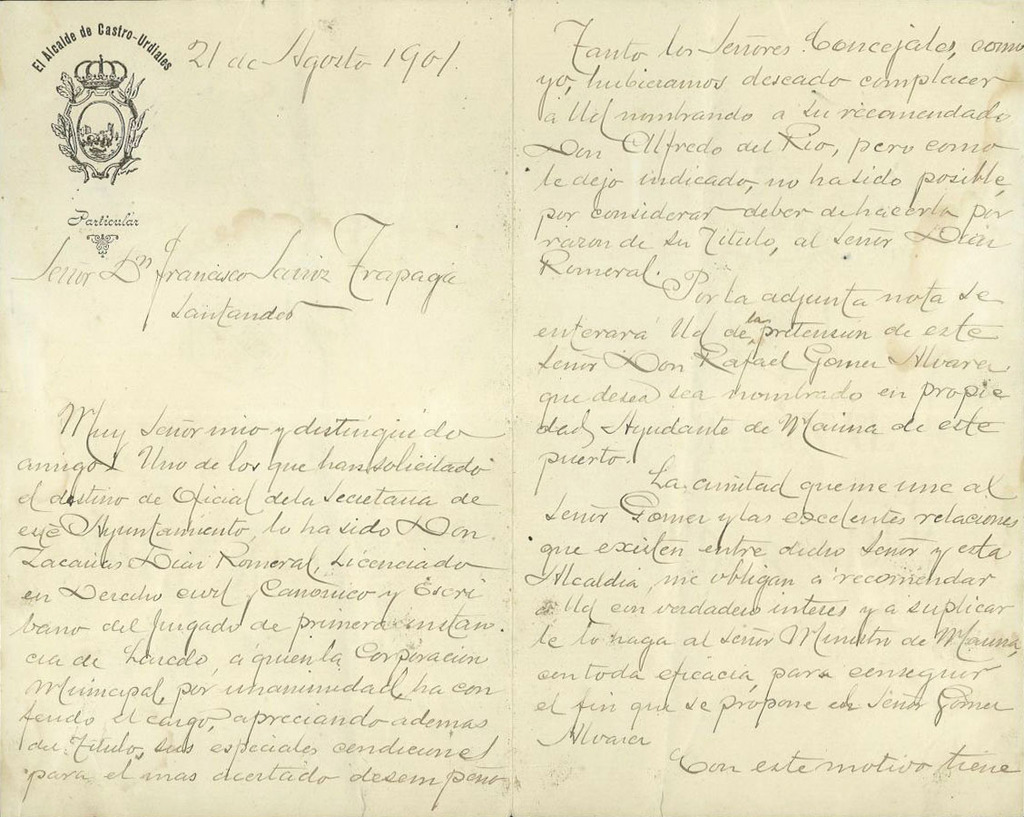 El Alcalde de Castro-Urdiales
21 de Agosto 1901.
Particular
Señor Dn Francisco Sainz Trapaga
Santander
Muy Señor mio y distinguido
amigo: Uno de los que han solicitado
el destino de Oficial de la Secretaria de
este Ayuntamiento, lo ha sido Don
Zacarias Diaz Romeral, Licenciado
en Derecho civil y Canonico y Escri
bano del Juzgado de primera instan
cia de Laredo, á quien la Corporacion
Municipal, por unanimidad, ha con
ferido el cargo, apreciando ademas
del Titulo, sus especiales condiciones
para el mas acertado desempeño
Tanto los Señores Concejales, como
yo, hubieramos deseado complacer
á Ud nombrando a su recomendado
Don Alfredo del Rio, pero como
le dejo indicado, no ha sido posible,
por considerar deber de hacerlo por
razon de su Titulo, al Señor Diaz
Romeral.
Por la adjunta nota se
enterará Ud de la pretension de este
Señor Don Rafael Gomez Alvarez
que desea sea nombrado en propie
dad, Ayudante de Marina de este
puerto.
La amistad que me une al
Señor Gomez y las excelentes relaciones
que existen entre dicho Señor y esta
Alcaldia, me obligan á recomendar
á Ud con verdadero interes y a suplicar
le lo haga al Señor Ministro de Marina,
con toda eficacia, para conseguir
el fin que se propone el Señor Gomez
Alvarez
Con este motivo tiene